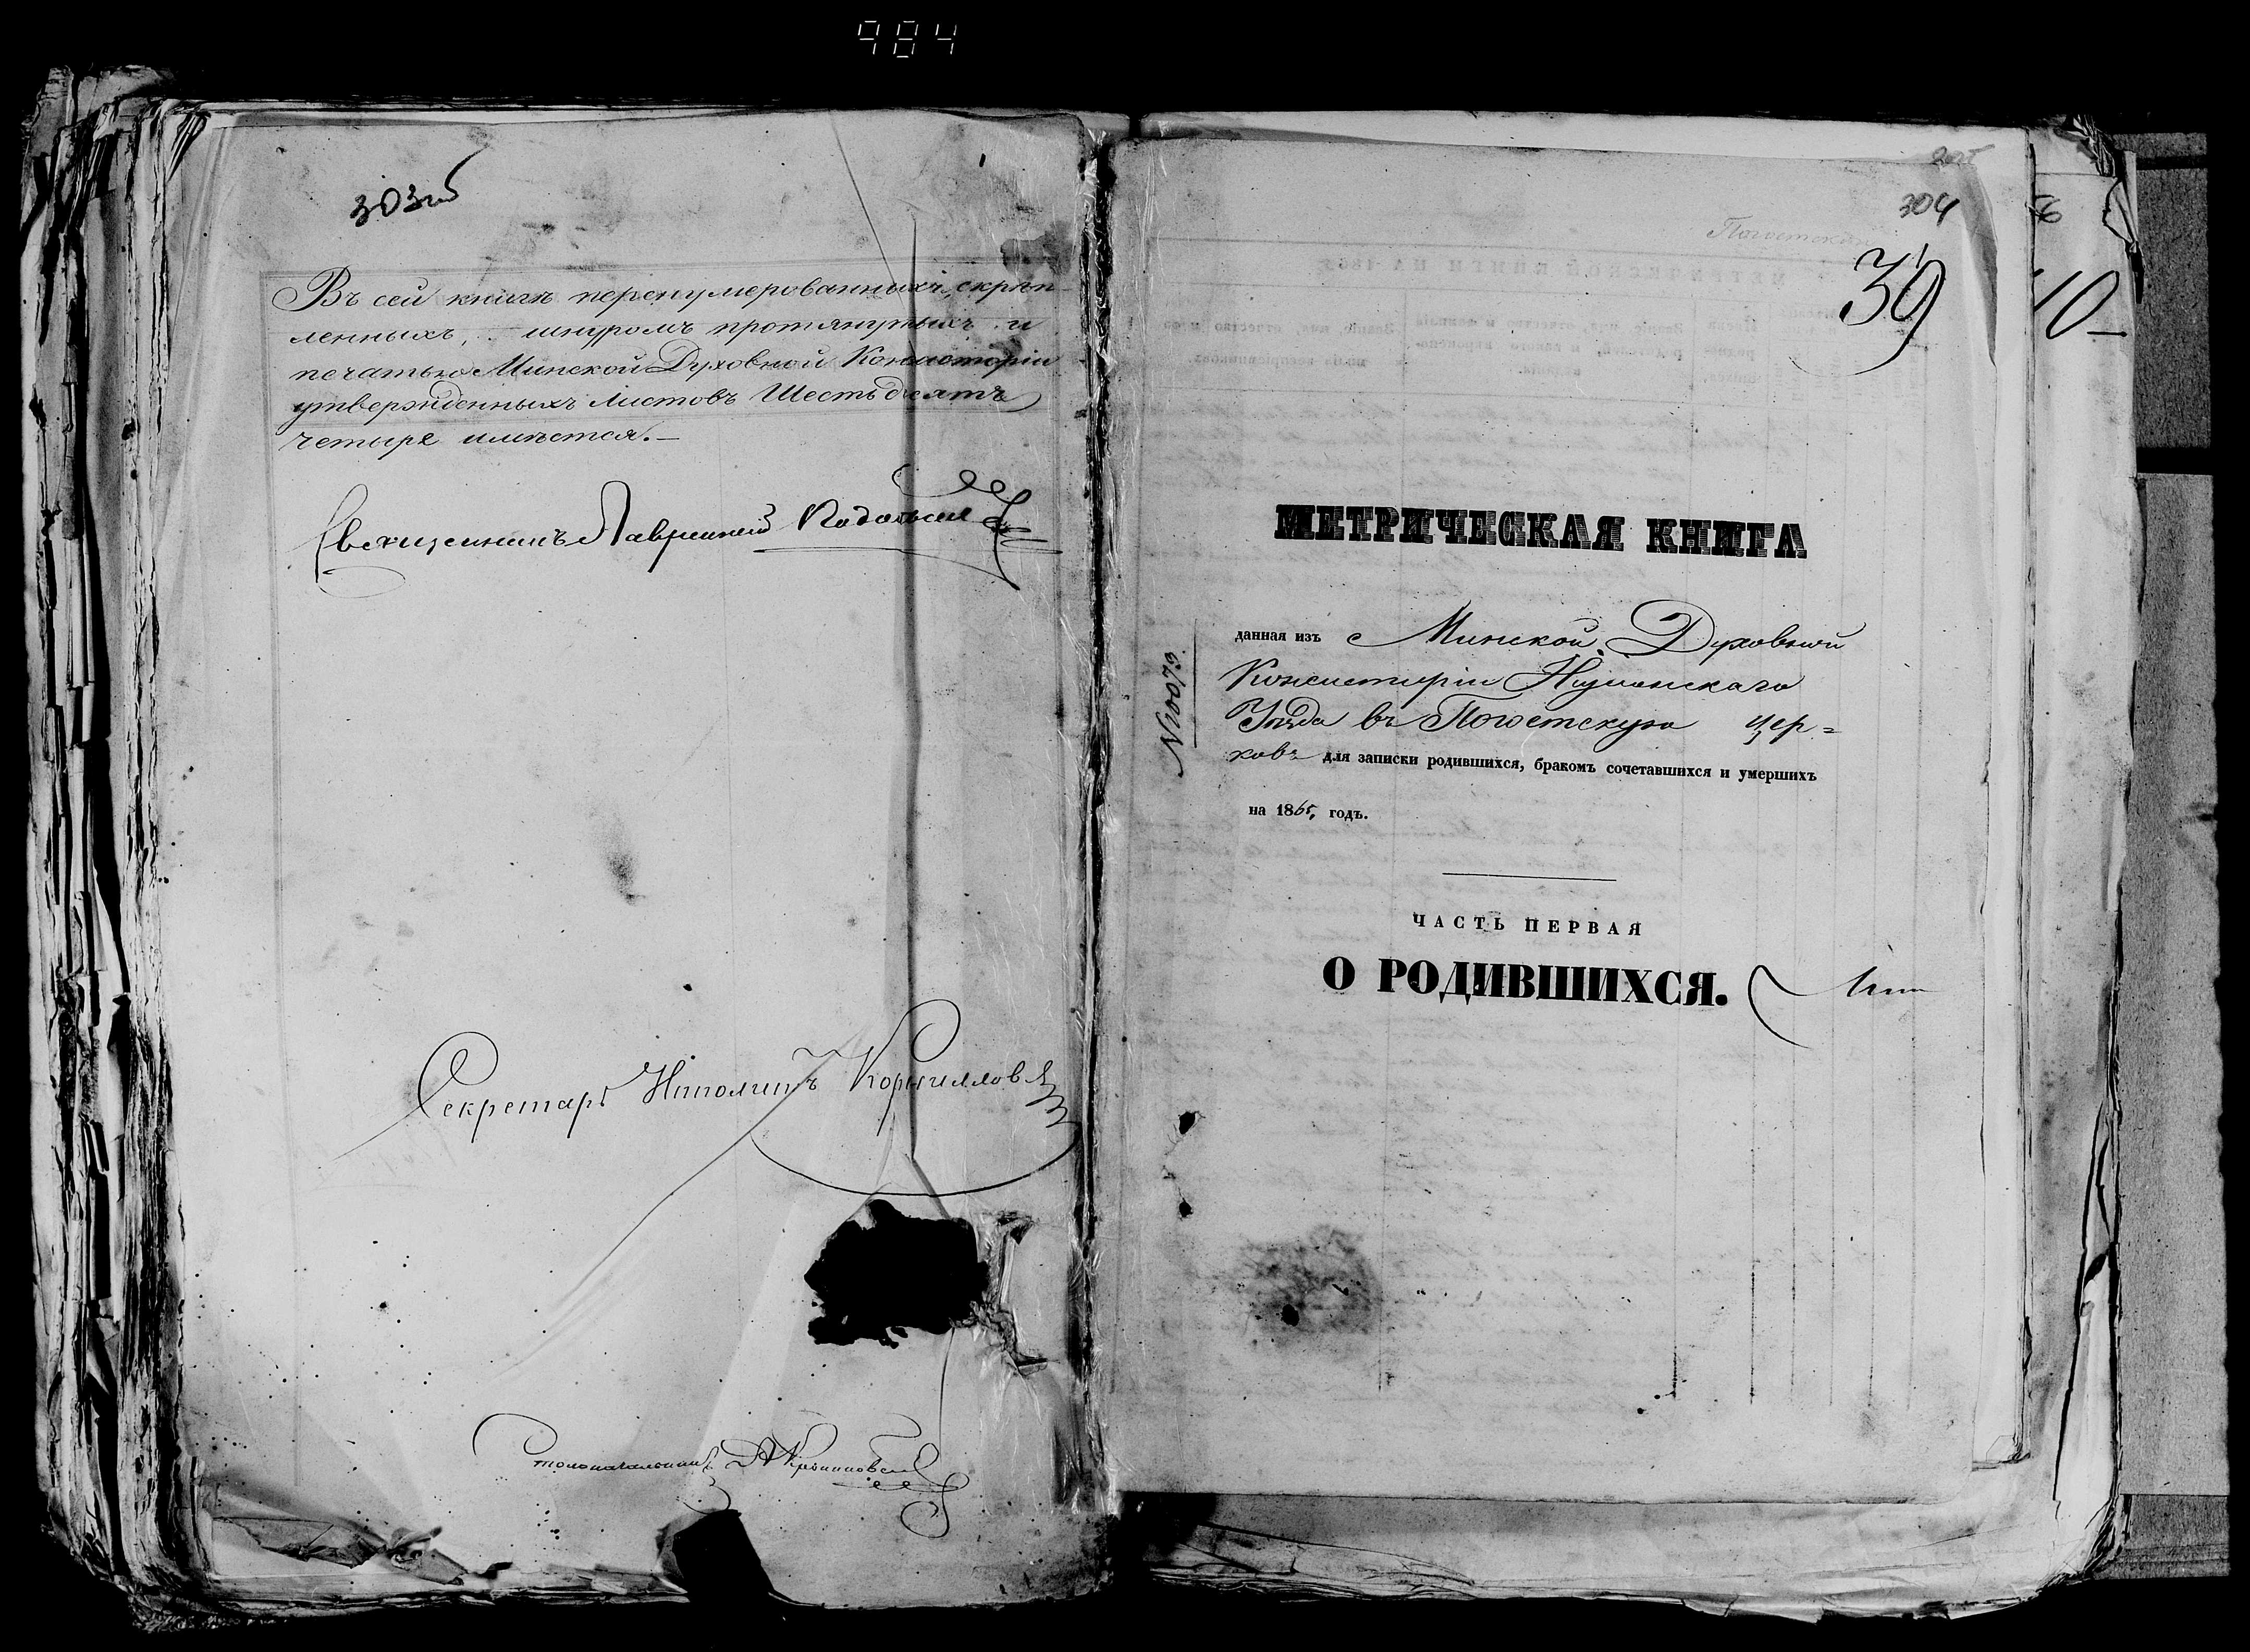 984
303 об
Въ сей книгѣ перенумерованныхъ, скрѣп-
ленныхъ, шнуромъ протянутыхъ и
печатью Минской Духовной Консисторіи
утвержденныхъ листовъ Шестьдесятъ
четыре имѣется.—
Священникъ Лаврентій
Секретарь Ипполитъ Корнилловъ
Столоначальникъ
304
39
10
МЕТРИЧЕСКАЯ КНИГА
№10073.
данная изъ с Минской Духовной
Консисторіи Игуменскаго
Уѣзда въ Погостскую цер=
ковь для записки родившихся, бракомъ сочетавшихся и умершихъ
на 1865, годъ.
ЧАСТЬ ПЕРВАЯ
О РОДИВШИХСЯ.